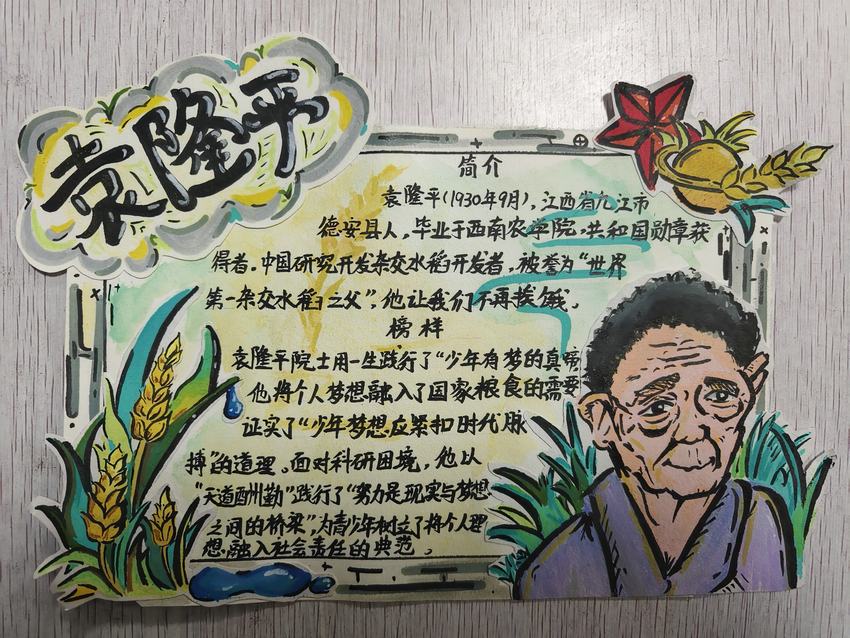 袁隆平
简介
袁隆平(1930年9月),江西省九江市
德安县人,毕业于西南农学院,共和国勋章获
得者.中国研究开发杂交水稻开发者,被誉为“世界
第一杂交水稻之父”,他让我们不再挨饿,
榜样
袁隆平院士用一生践行了“少年有梦的真
他将个人梦想融入了国家粮食的需要
证实了“少年梦想应紧扣时代脉
搏”的道理、面对科研困境,他以
“天道酬勤”践行了“努力是现实与梦想
之间的桥梁”,为青少年树立了将个人理
想融入社会责任的典范。